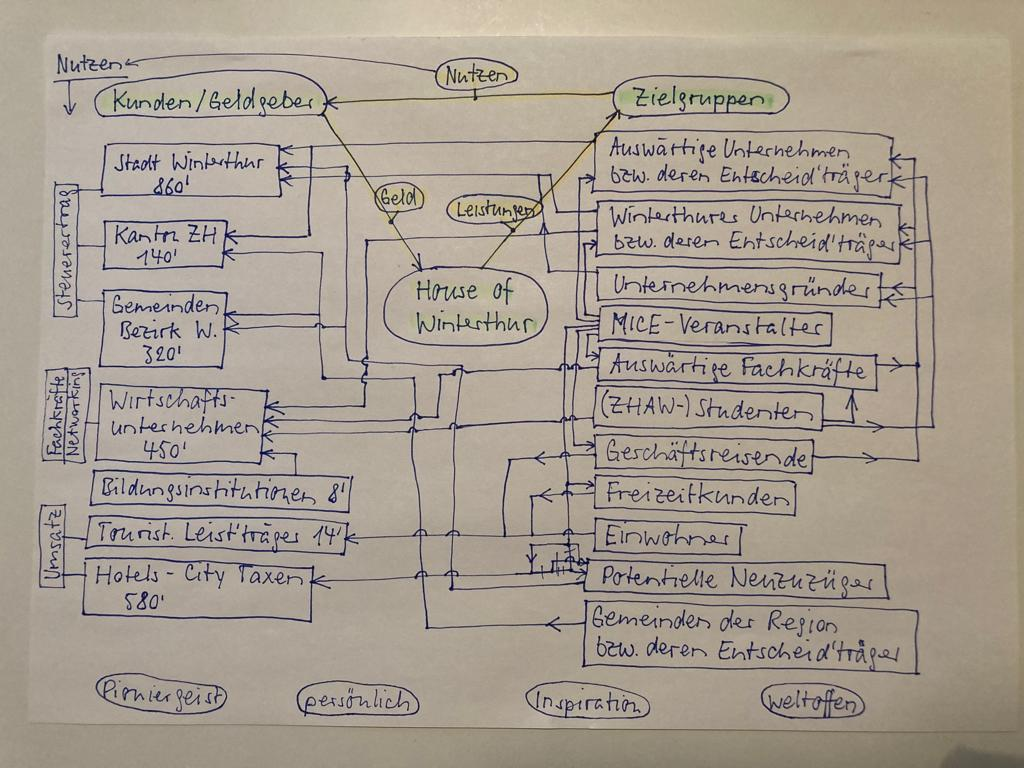 Nutzen
Nutzen
Kunden/Geldgeber
Zielgruppen
Stadt Winterthur
860'
Kanton ZH
140'
Gemeinden
Bezirk W.
320'
Steuerertrag
Wirtschafts-
unternehmen
450'
Fachkräfte
Networking
Bildungsinstitutionen 8'
Tourist. Leist'träger 14'
Hotels - City Taxen
580'
Umsatz
Geld
Leistungen
House of
Winterthur
Auswärtige Unternehmen
bzw. deren Entscheid'träger
Winterthurer Unternehmen
bzw. deren Entscheid'träger
Unternehmensgründer
MICE-Veranstalter
Auswärtige Fachkräfte
(ZHAW-) Studenten
Geschäftsreisende
Freizeitkunden
Einwohner
Potentielle Neuzuzüger
Gemeinden der Region
bzw. deren Entscheid'träger
Pioniergeist
persönlich
Inspiration
weltoffen